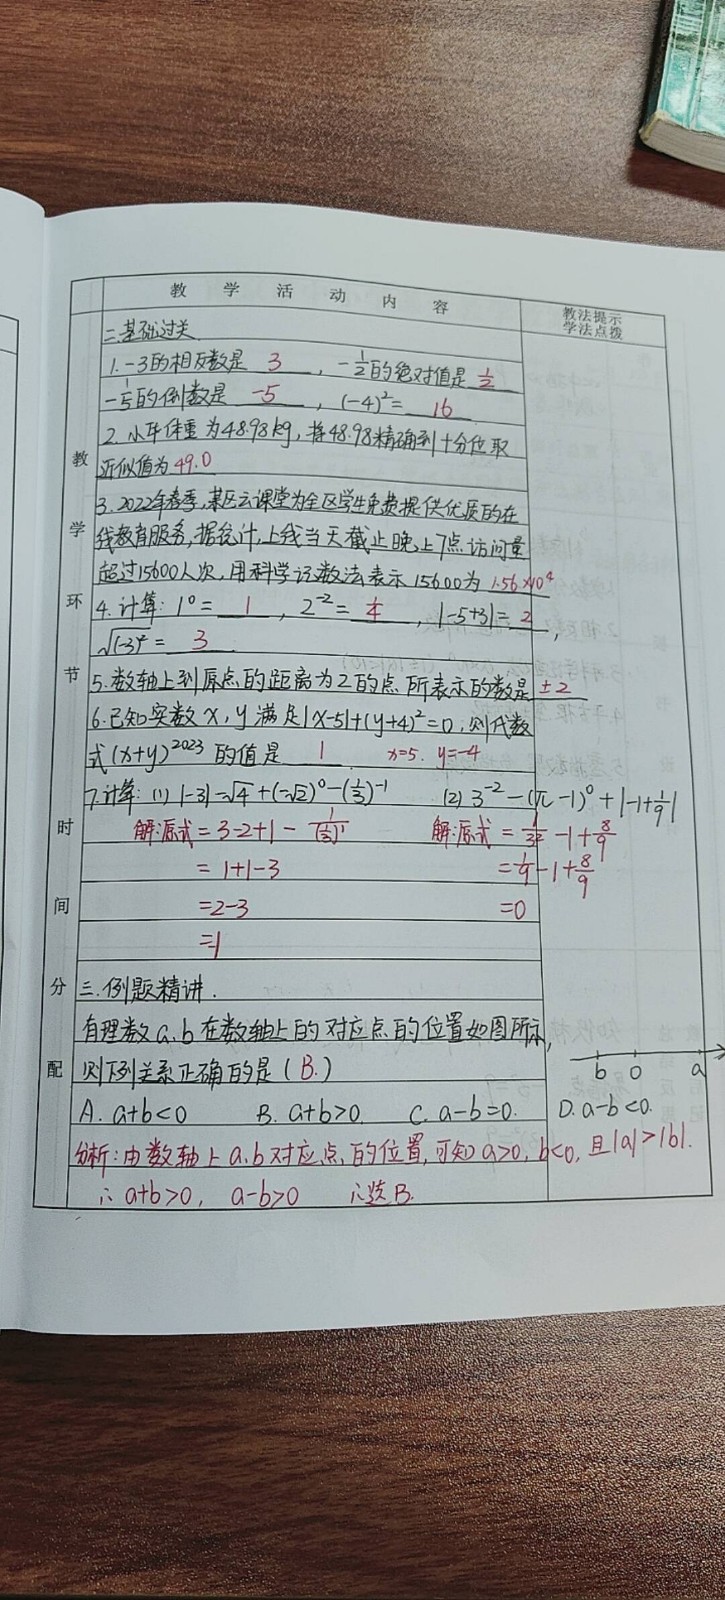 教学活动内容
教法提示
学法点拨
教学环节时间分配
二.基础过关
1.-3的相反数是 3 ，-1/2的绝对值是 1/2
-1/5的倒数是 -5 ，(-4)²= 16
2.小华体重为48.98kg,将48.98精确到十分位取
近似值为49.0
3.2022年春季,某区云课堂为全区学生免费提供优质的在
线教育服务,据统计,上线当天截止晚上7点访问量
超过15600人次,用科学记数法表示15600为 1.56×10⁴
4.计算: 1⁰= 1 ，2⁻²= 4 ，|-5+3|= 2 ，
√(-3)² = 3
5.数轴上到原点的距离为2的点所表示的数是 ±2
6.已知实数x,y满足|x-5|+(y+4)²=0,则代数
式(x+y)²⁰²³的值是 1 . x=5. y=-4
7.计算: (1) |-3|-√4+(-√2)⁰-(1/3)⁻¹ (2) 3⁻²-(π-1)⁰+|-1+1/9|
解:原式=3-2+1-1/(1/3)¹ 解:原式=1/3²-1+8/9
=1+1-3 =1/9-1+8/9
=2-3 =0
=-1
三.例题精讲.
有理数a.b在数轴上的对应点的位置如图所示,
b 0 a
则下列关系正确的是(B.)
A. a+b<0 B. a+b>0. C. a-b=0. D. a-b<0.
分析:由数轴上a.b对应点的位置,可知a>0, b<0, 且|a|>|b|.
∴ a+b>0, a-b>0 ∴选B.